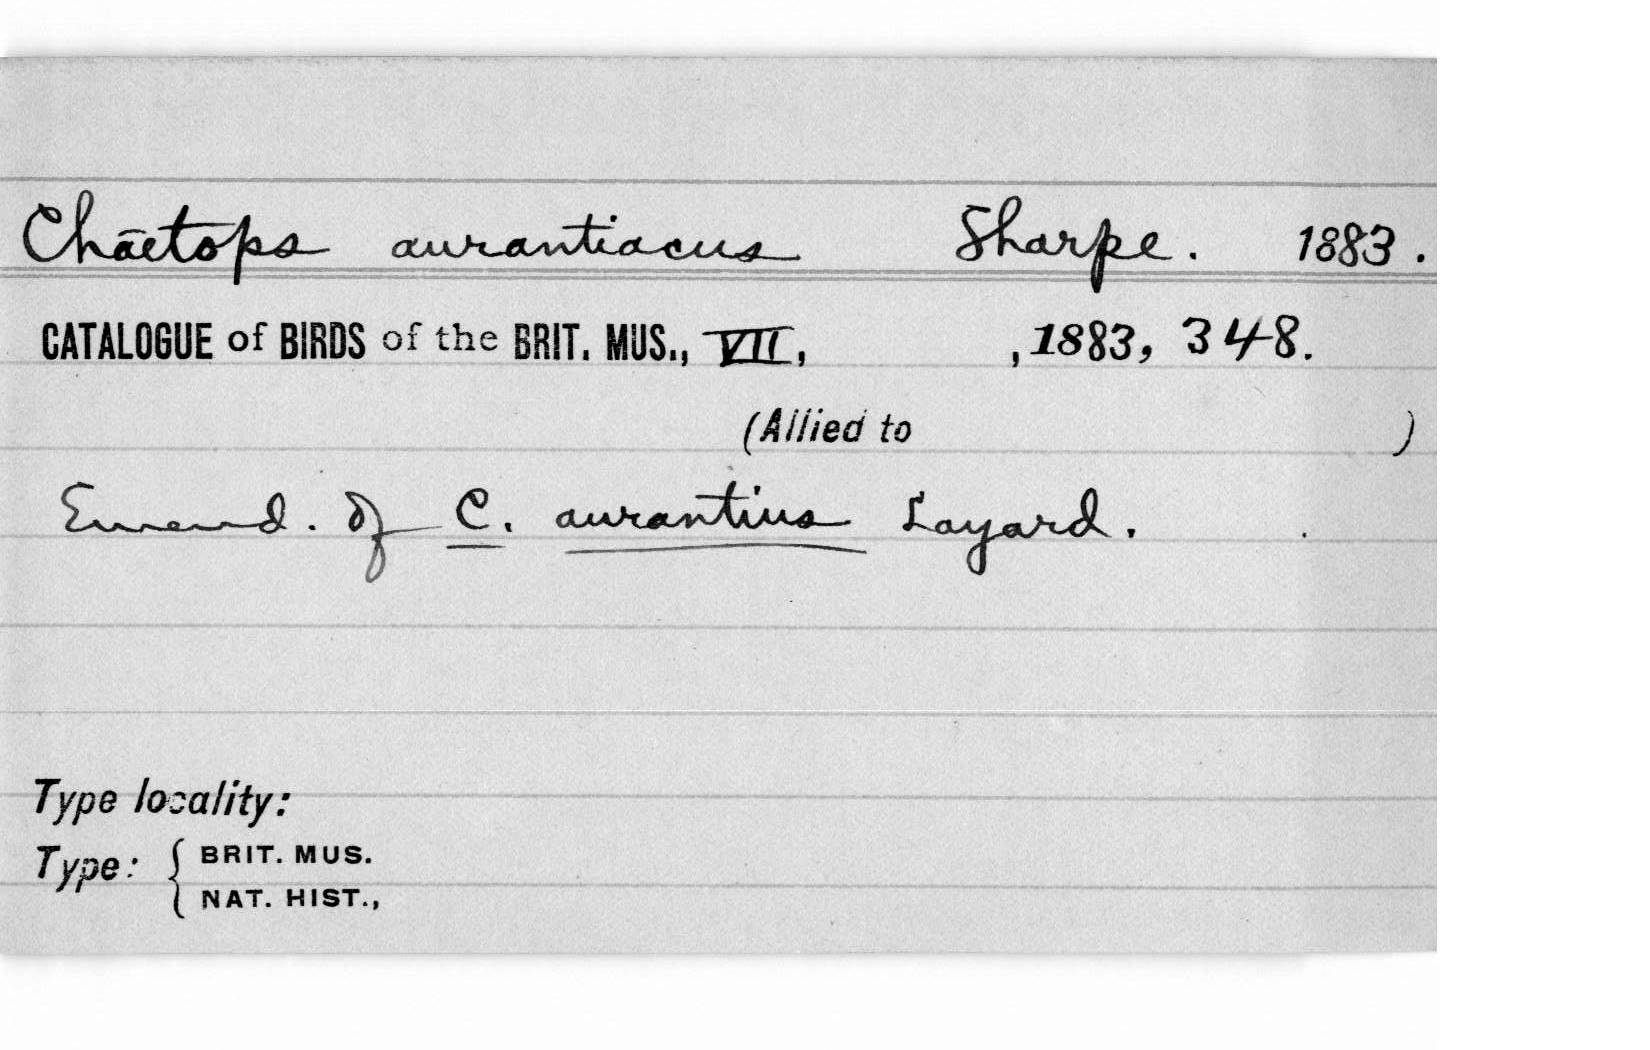 Chaetops aurantiacus Sharpe. 1883.
CATALOGUE of BIRDS of the BRIT. MUS., VII, , 1883, 348.
(Allied to )
Emend. of C. aurantius Layard.
Type locality:
Type: { BRIT. MUS.
NAT. HIST.,